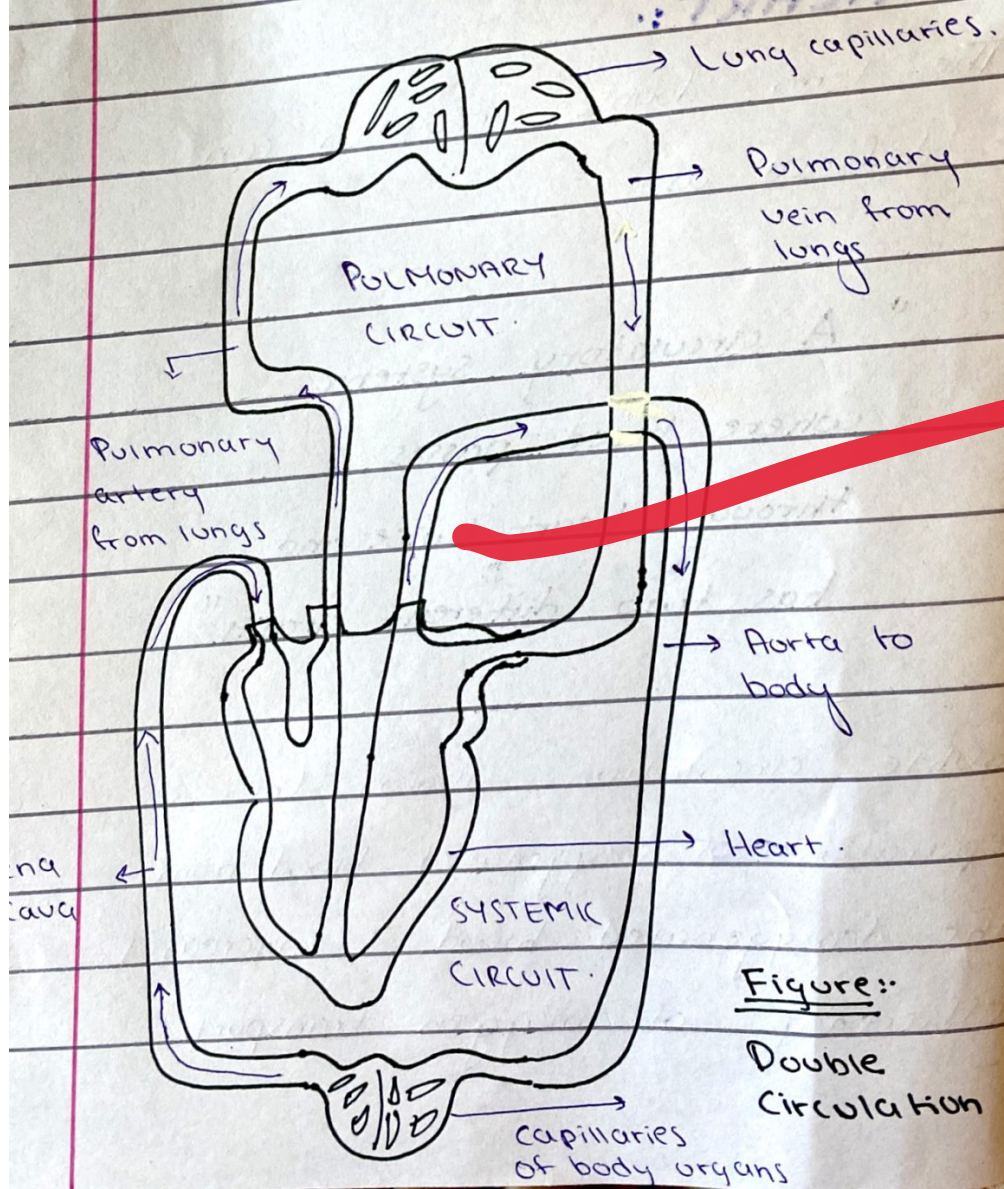 Lung capillaries.
Pulmonary
vein from
lungs
PULMONARY
CIRCUIT.
Pulmonary
artery
from lungs
Aorta to
body
Heart.
na
cava
SYSTEMIC
CIRCUIT.
Figure:-
Double
Circulation
capillaries
of body organs